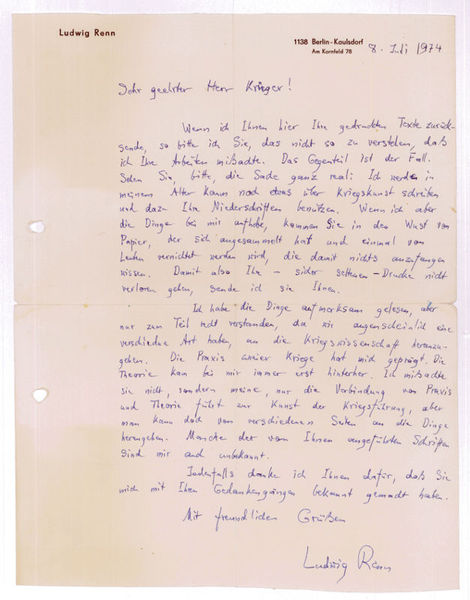 Ludwig Renn
1138 Berlin-Kaulsdorf
Am Kornfeld 78
8. Juli 1974
Sehr geehrter Herr Krieger!
Wenn ich Ihnen hier Ihre gedruckten Texte zurück-
sende, so bitte ich Sie, das nicht so zu verstehen, daß
ich Ihre Arbeiten mißachte. Das Gegenteil ist der Fall.
Sehen Sie, bitte, die Sache ganz real: Ich werde in
meinem Alter kaum noch etwas über Kriegskunst schreiben
und dazu Ihre Niederschriften benützen. Wenn ich aber
die Dinge bei mir aufhebe, kommen Sie in den Wust von
Papier, der sich angesammelt hat und einmal von
Leuten vernichtet werden wird, die damit nichts anzufangen
wissen. Damit also Ihre – sicher seltenen – Drucke nicht
verloren gehen, sende ich sie Ihnen.
Ich habe die Dinge aufmerksam gelesen, aber
nur zum Teil recht verstanden, da wir augenscheinlich eine
verschiedne Art haben, an die Kriegswissenschaft heranzu-
gehen. Die Praxis zweier Kriege hat mich geprägt. Die
Theorie kam bei mir immer erst hinterher. Ich mißachte
sie nicht, sondern meine, nur die Verbindung von Praxis
und Theorie führt zur Kunst der Kriegsführung, aber
man kann doch von verschiedenen Seiten an die Dinge
herangehen. Manche der von Ihnen angeführten Schriften
sind mir auch unbekannt.
Jedenfalls danke ich Ihnen dafür, daß Sie
mich mit Ihren Gedankengängen bekannt gemacht haben.
Mit freundlichen Grüßen
Ludwig Renn